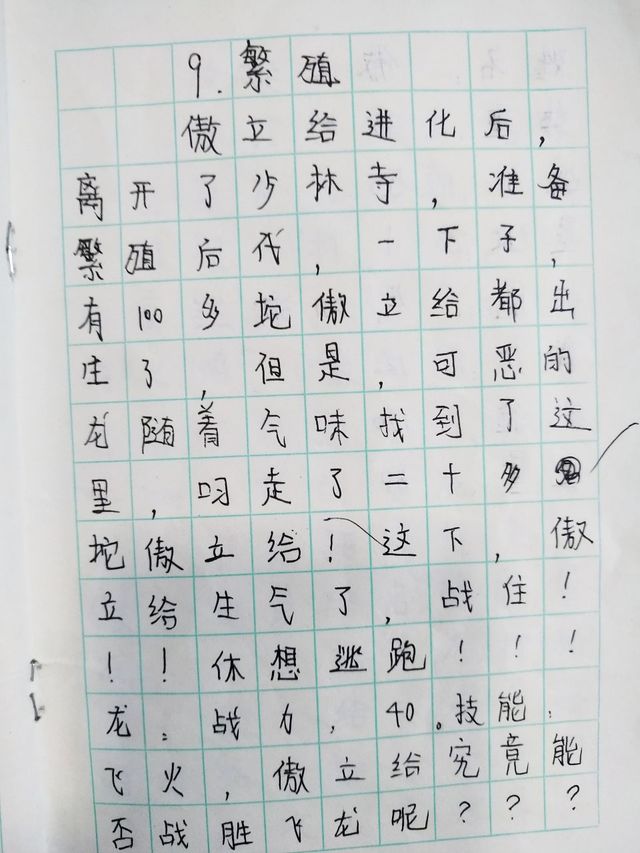 9.繁殖
傲立给进化后，
离开了少林寺，准备
繁殖后代，一下子，
有100多坨傲立给都出
生了，但是，可恶的
龙随着气味找到了这
里，叼走了二十多
坨傲立给！这下，傲
立给生气了，战住！
！！休想逃跑！！！
龙：战力，40。技能：
飞火，傲立给究竟能
否战胜飞龙呢？？？